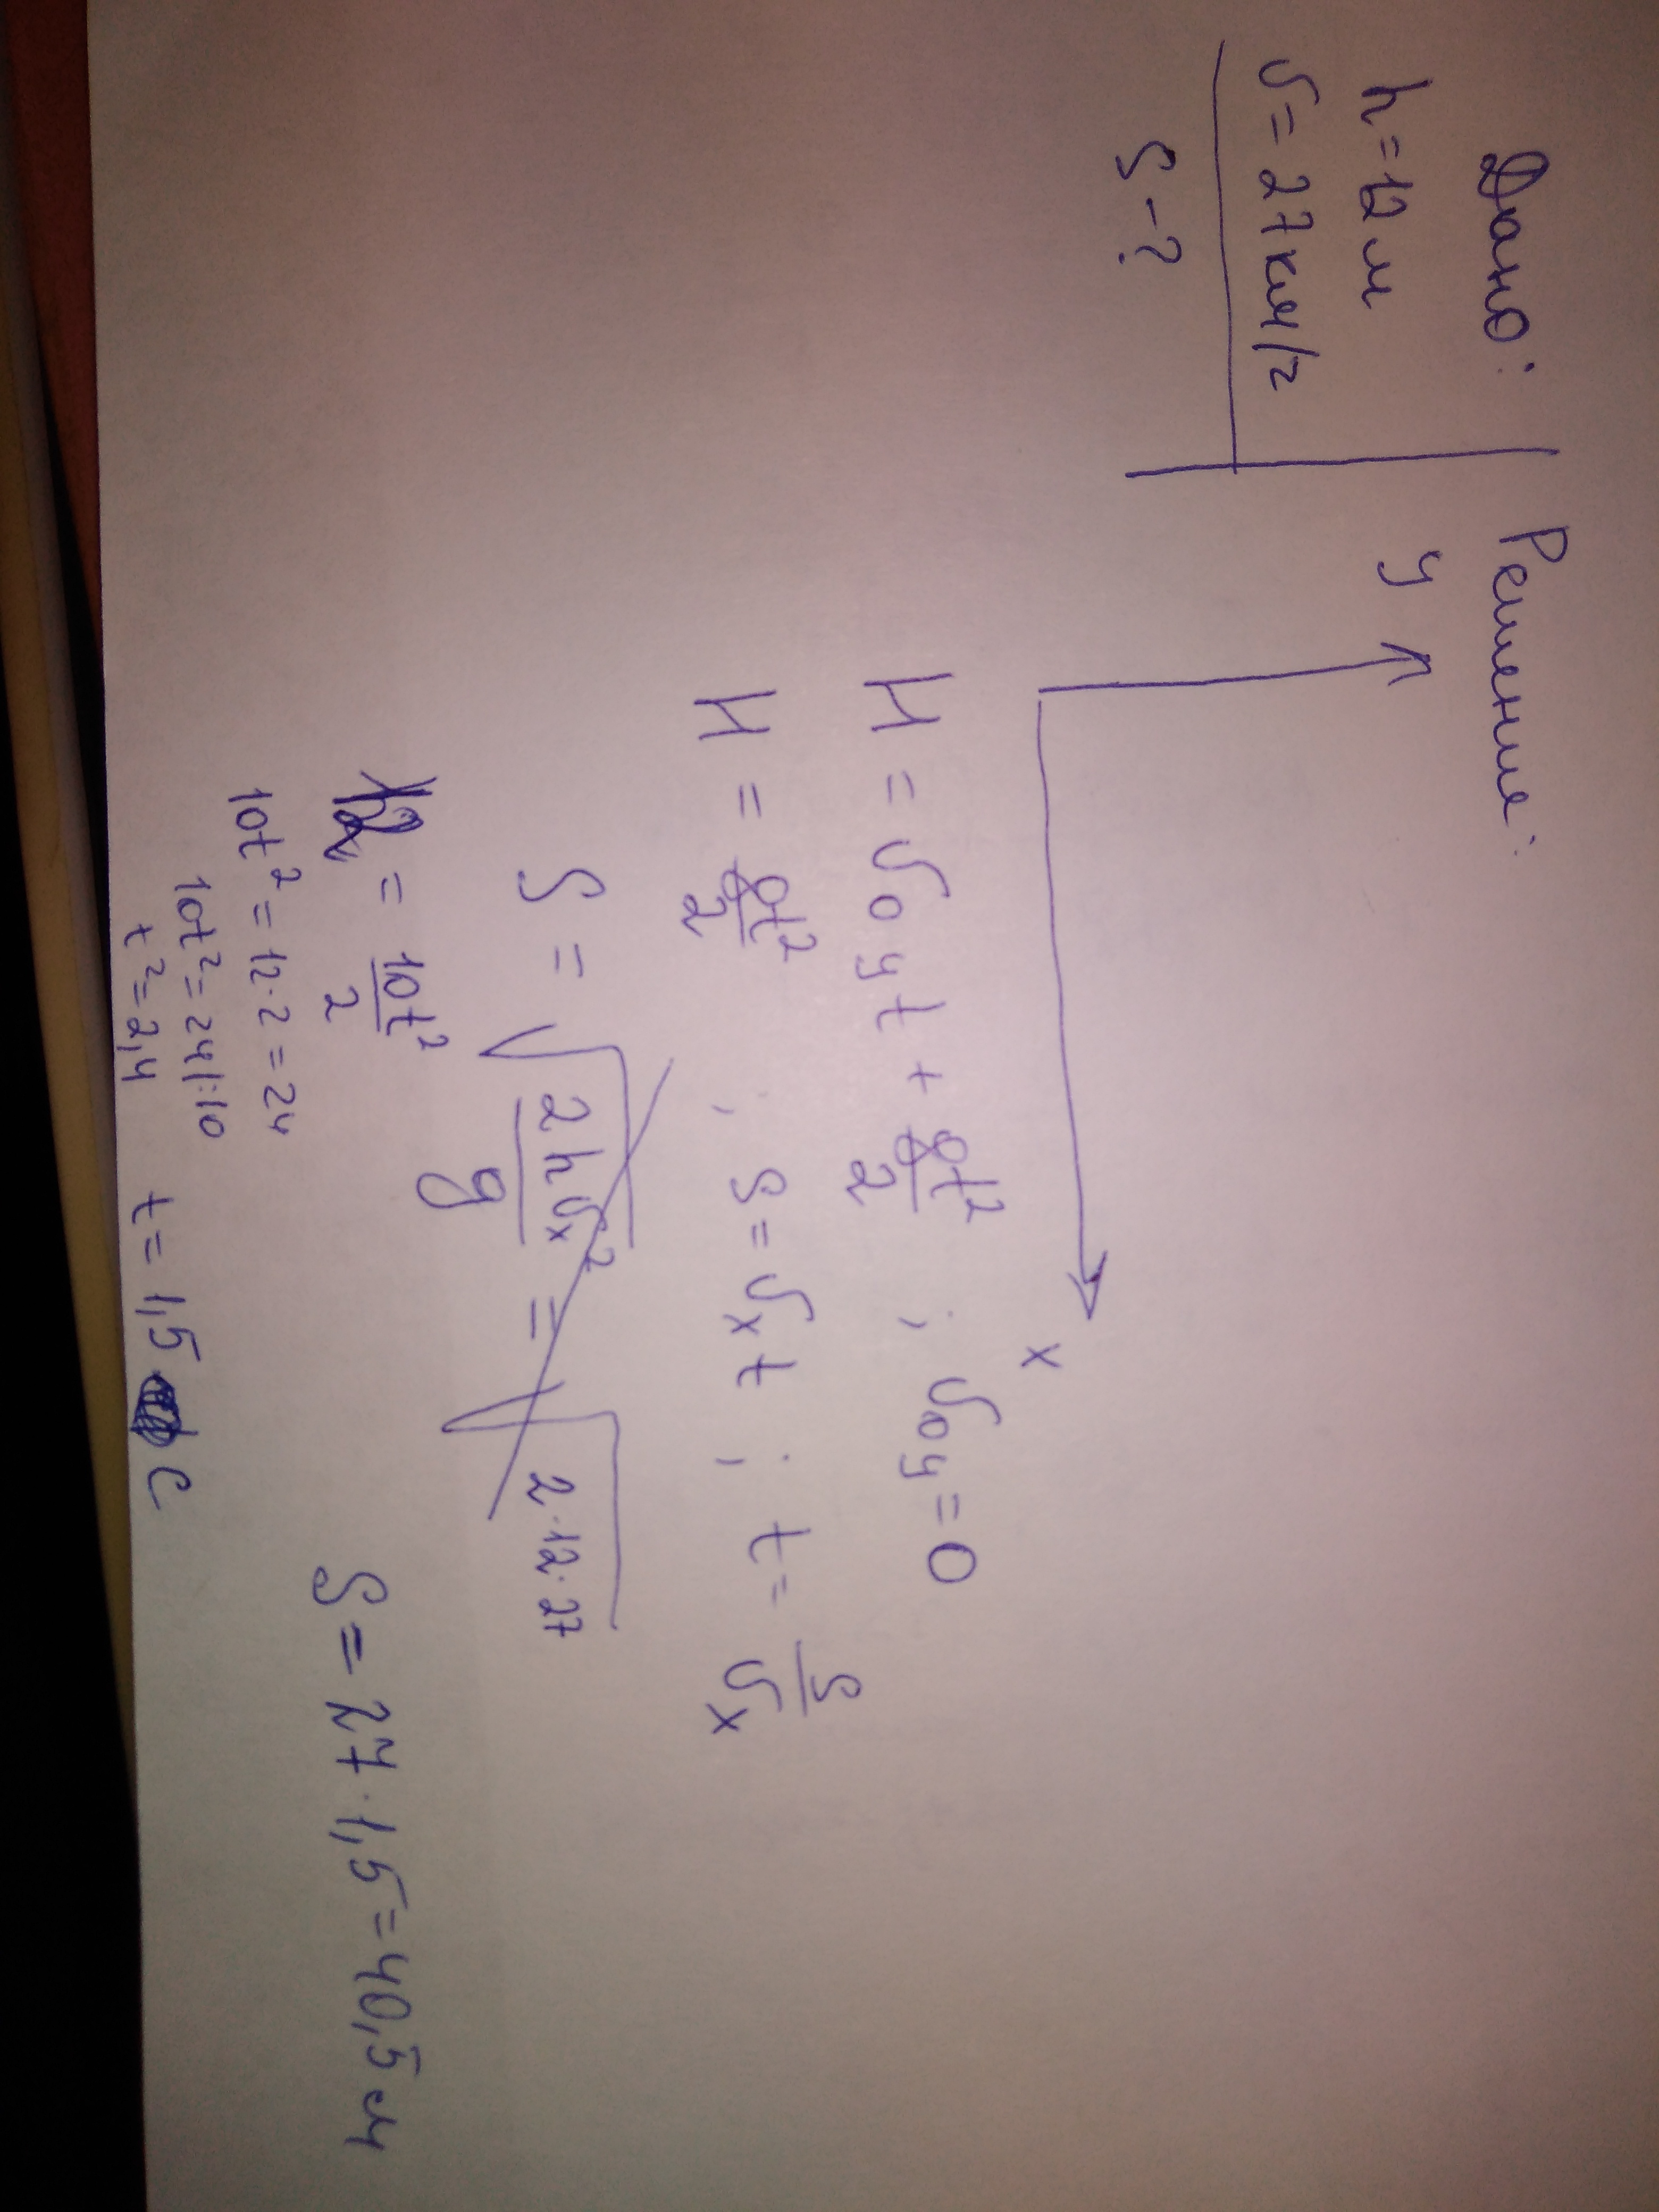 Дано:
h = 12 м
υ = 27 км/ч
S - ?
Решение:
y
x
H = υ₀yt + gt²/2 ; υ₀y = 0
H = gt²/2 ; S = υₓt ; t = S/υₓ
S = √(2hυₓ²/g) = √(2·12·27
12 = 10t²/2
10t² = 12·2 = 24
10t² = 24 |:10
t² = 2,4 t = 1,5 с
S = 27·1,5 = 40,5 м